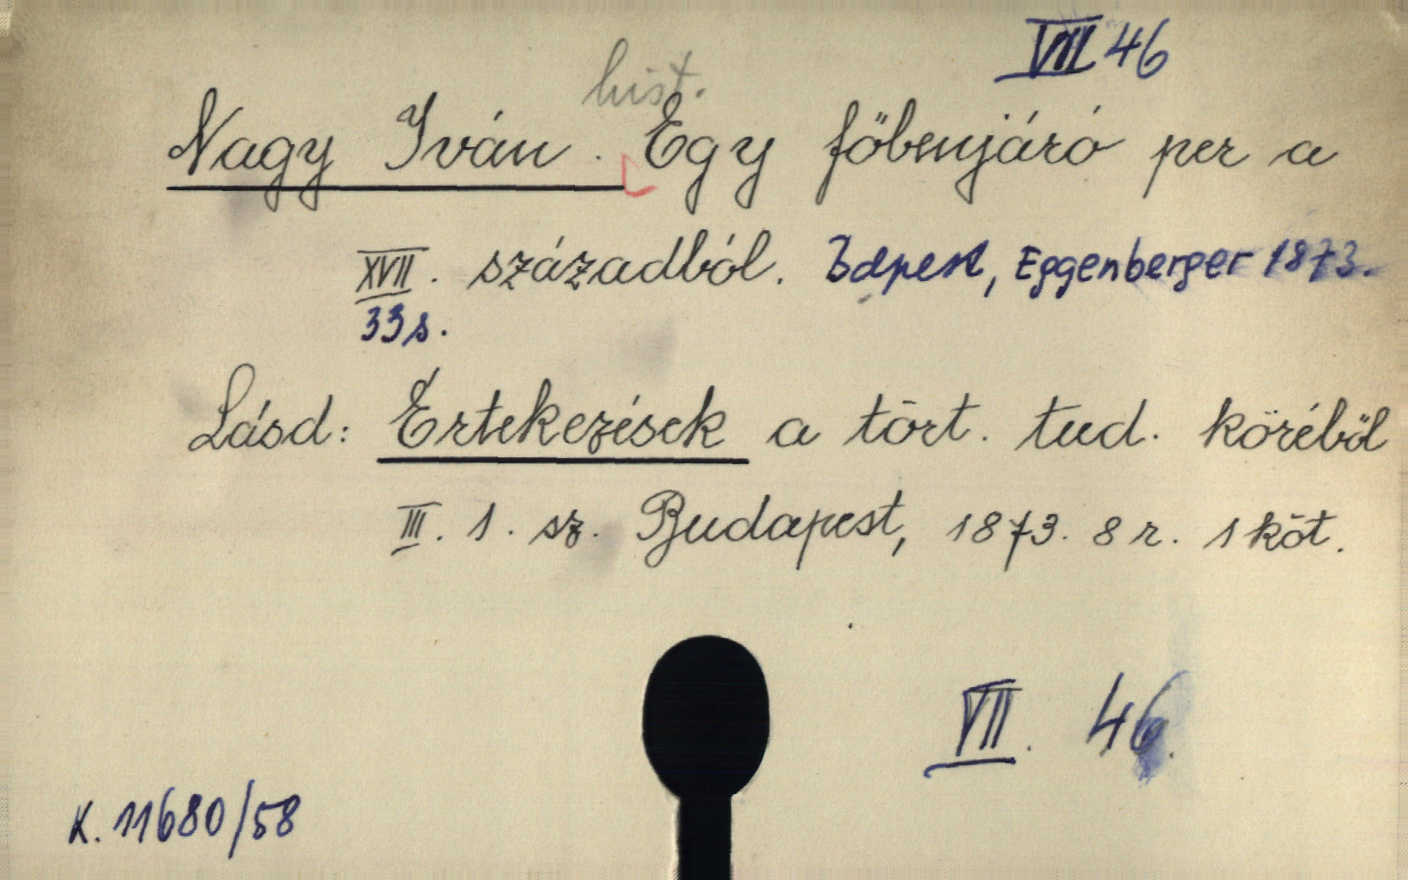 VII 46
hist.
Nagy Iván. Egy főbenjáró per a
XVII. századból. Bdpest, Eggenberger 1873.
33 s.
Lásd: Értekezések a tört. tud. köréből
III. 1. sz. Budapest, 1873. 8 r. 1 köt.
VII. 46.
K. 11680/58